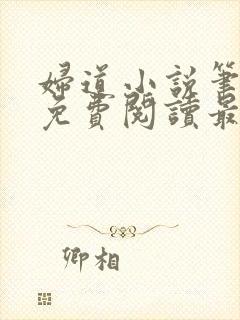 婦道小說筆
免費閱讀最
卿相